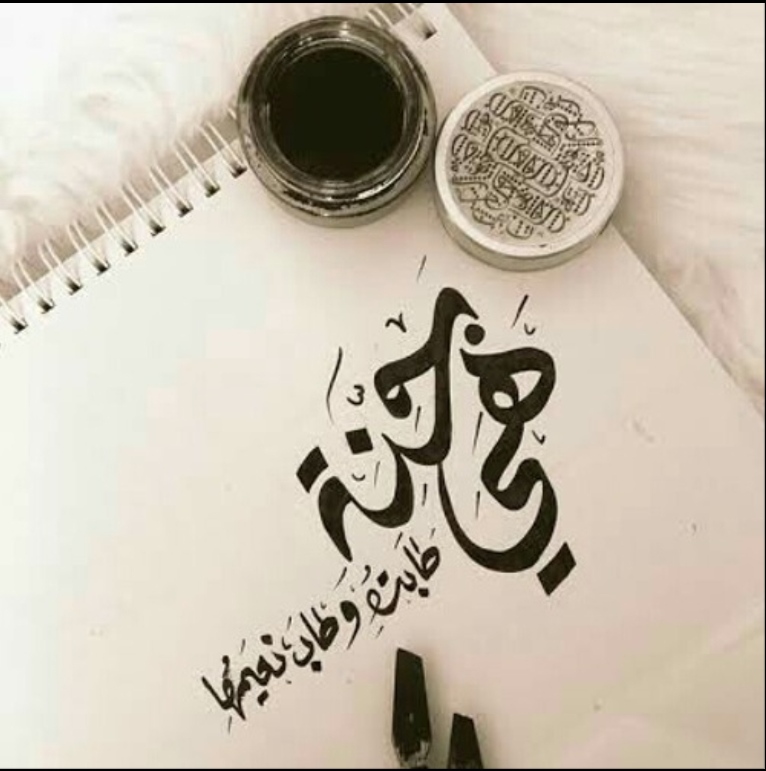 هي جنة
طابت وطاب نعيمها